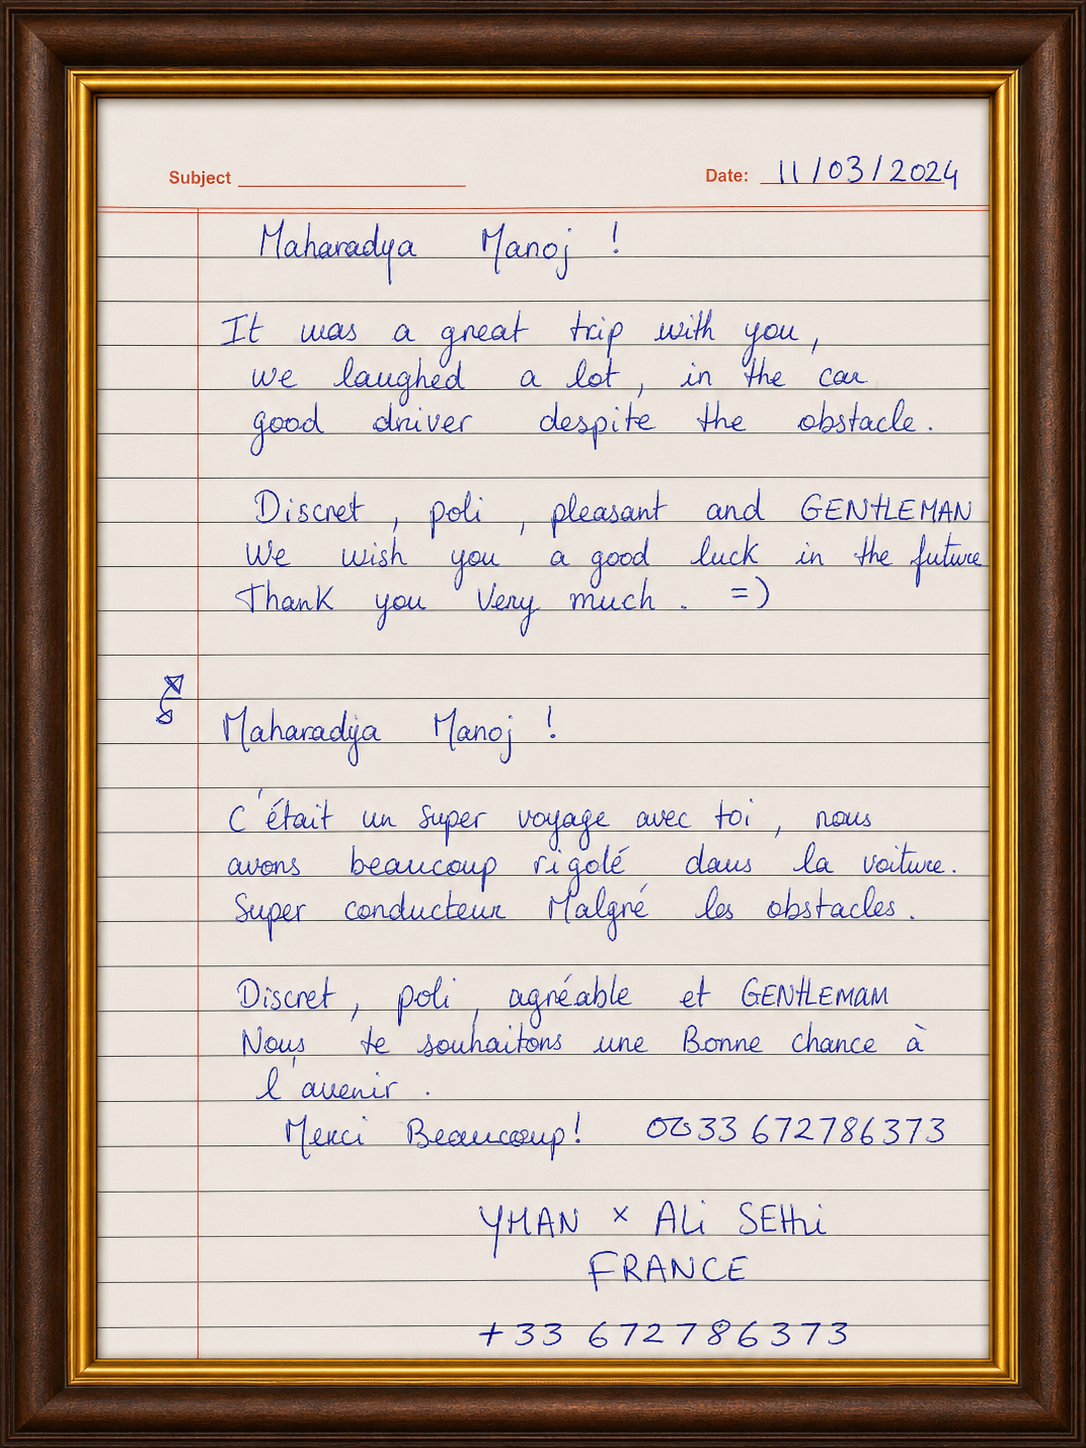 Subject
Date: 11/03/2024
Maharadya Manoj !
It was a great trip with you,
we laughed a lot, in the car
good driver despite the obstacle.
Discret, poli, pleasant and GENTLEMAN
We wish you a good luck in the future
Thank you Very much. =)
Maharadja Manoj !
C'était un super voyage avec toi, nous
avons beaucoup rigolé dans la voiture.
Super conducteur Malgré les obstacles.
Discret, poli, agréable et GENTLEMAM
Nous te souhaitons une Bonne chance à
l'avenir.
Merci Beaucoup! 0033 672786373
YMAN x ALi SEthi
FRANCE
+33 672786373